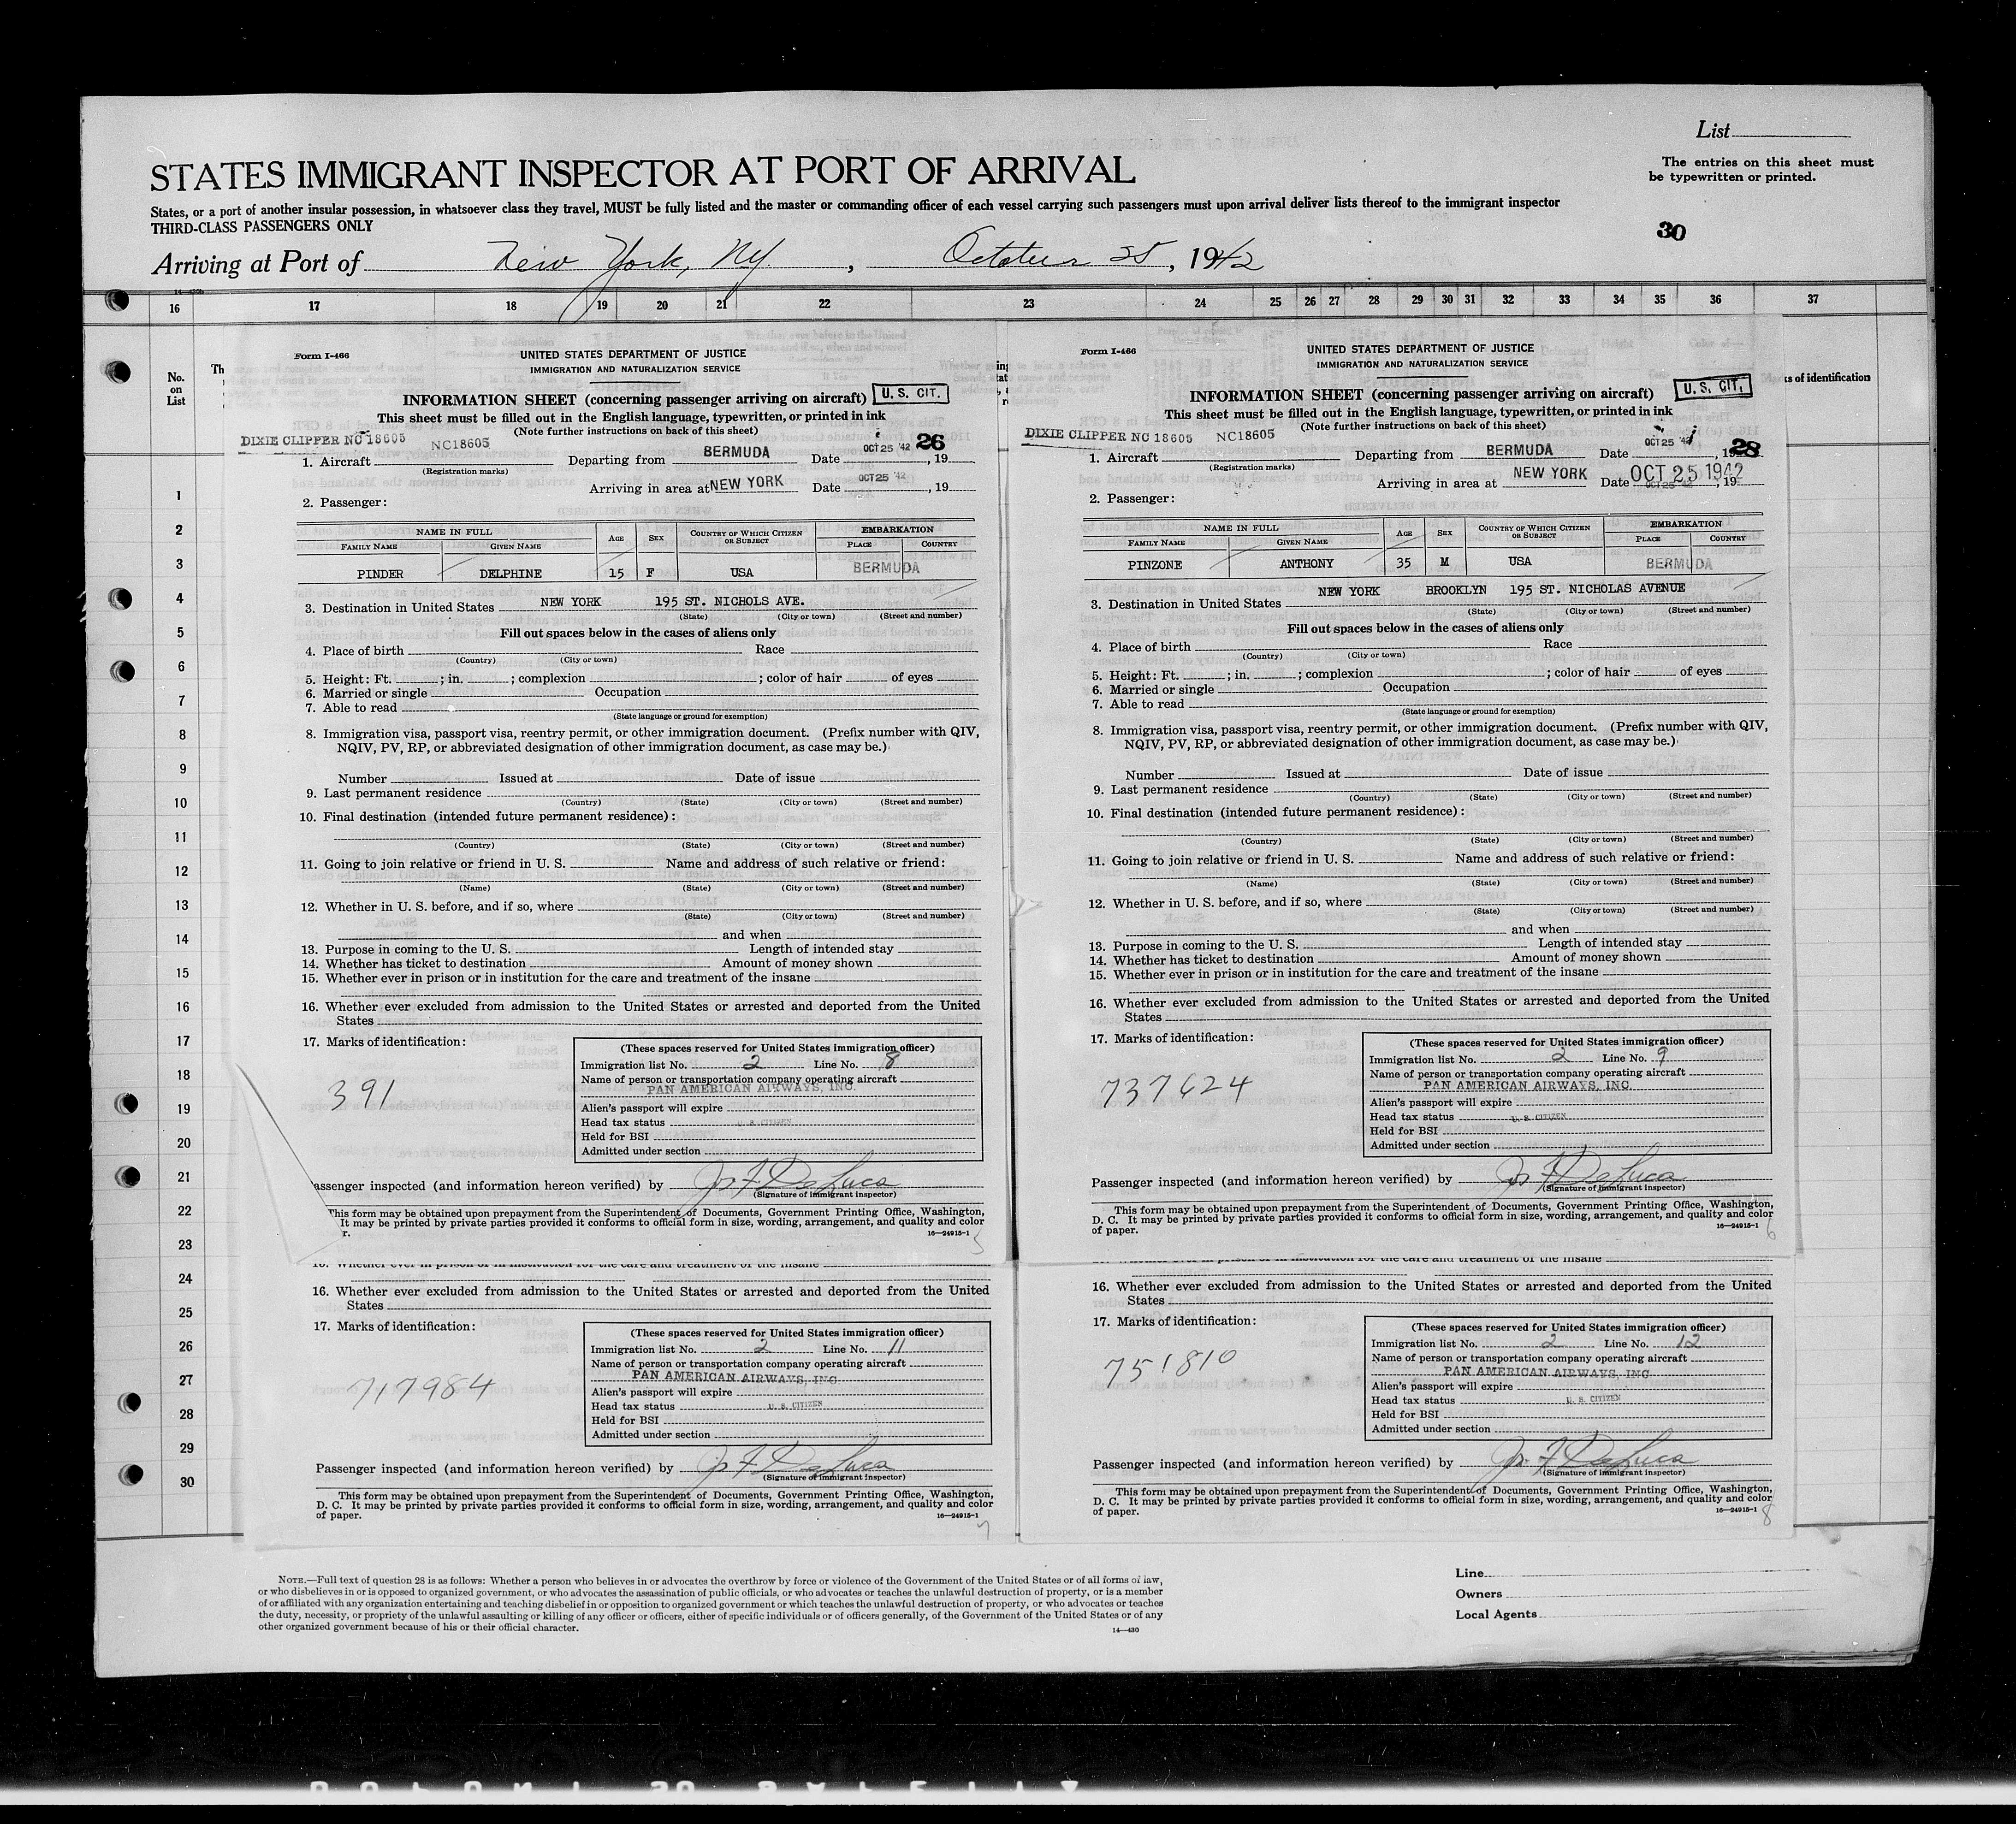 List
STATES IMMIGRANT INSPECTOR AT PORT OF ARRIVAL
The entries on this sheet must
be typewritten or printed.
States, or a port of another insular possession, in whatsoever class they travel, MUST be fully listed and the master or commanding officer of each vessel carrying such passengers must upon arrival deliver lists thereof to the immigrant inspector
THIRD-CLASS PASSENGERS ONLY
30
Arriving at Port of New York, NY. , October 25, 1942
16 17 18 19 20 21 22 23 24 25 26 27 28 29 30 31 32 33 34 35 36 37
No.
on
List
Th
ks of identification
1
2
3
4
5
6
7
8
9
10
11
12
13
14
15
16
17
18
19
20
21
22
23
24
25
26
27
28
29
30
Form I-466
UNITED STATES DEPARTMENT OF JUSTICE
IMMIGRATION AND NATURALIZATION SERVICE
INFORMATION SHEET (concerning passenger arriving on aircraft) U. S. CIT.
This sheet must be filled out in the English language, typewritten, or printed in ink
(Note further instructions on back of this sheet)
DIXIE CLIPPER NC 18605 NC18605 26
1. Aircraft Departing from BERMUDA Date OCT 25 '42, 19
(Registration marks)
Arriving in area at NEW YORK Date OCT 25 '42, 19
2. Passenger:
NAME IN FULL AGE SEX COUNTRY OF WHICH CITIZEN OR SUBJECT EMBARKATION
FAMILY NAME GIVEN NAME PLACE COUNTRY
PINDER DELPHINE 15 F USA BERMUDA
3. Destination in United States NEW YORK 195 ST. NICHOLS AVE.
(State) (City or town) (Street and number)
Fill out spaces below in the cases of aliens only
4. Place of birth Race
(Country) (City or town)
5. Height: Ft. ; in. ; complexion ; color of hair of eyes
6. Married or single Occupation
7. Able to read
(State language or ground for exemption)
8. Immigration visa, passport visa, reentry permit, or other immigration document. (Prefix number with QIV,
NQIV, PV, RP, or abbreviated designation of other immigration document, as case may be.)
Number Issued at Date of issue
9. Last permanent residence
(Country) (State) (City or town) (Street and number)
10. Final destination (intended future permanent residence):
(Country) (State) (City or town) (Street and number)
11. Going to join relative or friend in U. S. Name and address of such relative or friend:
(Name) (State) (City or town) (Street and number)
12. Whether in U. S. before, and if so, where
(State) (City or town) (Street and number)
and when
13. Purpose in coming to the U. S. Length of intended stay
14. Whether has ticket to destination Amount of money shown
15. Whether ever in prison or in institution for the care and treatment of the insane
16. Whether ever excluded from admission to the United States or arrested and deported from the United
States
17. Marks of identification:
391
(These spaces reserved for United States immigration officer)
Immigration list No. 2 Line No. 8
Name of person or transportation company operating aircraft
PAN AMERICAN AIRWAYS, INC.
Alien's passport will expire
Head tax status U. S. CITIZEN
Held for BSI
Admitted under section
assenger inspected (and information hereon verified) by Js F DeLuca
(Signature of immigrant inspector)
This form may be obtained upon prepayment from the Superintendent of Documents, Government Printing Office, Washington,
It may be printed by private parties provided it conforms to official form in size, wording, arrangement, and quality and color
r.
16—24915-1
5
Form I-466
UNITED STATES DEPARTMENT OF JUSTICE
IMMIGRATION AND NATURALIZATION SERVICE
INFORMATION SHEET (concerning passenger arriving on aircraft) U. S. CIT.
This sheet must be filled out in the English language, typewritten, or printed in ink
(Note further instructions on back of this sheet)
DIXIE CLIPPER NC 18605 NC18605 28
1. Aircraft Departing from BERMUDA Date OCT 25 '42, 19
(Registration marks)
Arriving in area at NEW YORK Date OCT 25 1942, 19
2. Passenger:
NAME IN FULL AGE SEX COUNTRY OF WHICH CITIZEN OR SUBJECT EMBARKATION
FAMILY NAME GIVEN NAME PLACE COUNTRY
PINZONE ANTHONY 35 M USA BERMUDA
3. Destination in United States NEW YORK BROOKLYN 195 ST. NICHOLAS AVENUE
(State) (City or town) (Street and number)
Fill out spaces below in the cases of aliens only
4. Place of birth Race
(Country) (City or town)
5. Height: Ft. ; in. ; complexion ; color of hair of eyes
6. Married or single Occupation
7. Able to read
(State language or ground for exemption)
8. Immigration visa, passport visa, reentry permit, or other immigration document. (Prefix number with QIV,
NQIV, PV, RP, or abbreviated designation of other immigration document, as case may be.)
Number Issued at Date of issue
9. Last permanent residence
(Country) (State) (City or town) (Street and number)
10. Final destination (intended future permanent residence):
(Country) (State) (City or town) (Street and number)
11. Going to join relative or friend in U. S. Name and address of such relative or friend:
(Name) (State) (City or town) (Street and number)
12. Whether in U. S. before, and if so, where
(State) (City or town) (Street and number)
and when
13. Purpose in coming to the U. S. Length of intended stay
14. Whether has ticket to destination Amount of money shown
15. Whether ever in prison or in institution for the care and treatment of the insane
16. Whether ever excluded from admission to the United States or arrested and deported from the United
States
17. Marks of identification:
737624
(These spaces reserved for United States immigration officer)
Immigration list No. 2 Line No. 9
Name of person or transportation company operating aircraft
PAN AMERICAN AIRWAYS, INC.
Alien's passport will expire
Head tax status U. S. CITIZEN
Held for BSI
Admitted under section
Passenger inspected (and information hereon verified) by Js F DeLuca
(Signature of immigrant inspector)
This form may be obtained upon prepayment from the Superintendent of Documents, Government Printing Office, Washington,
D. C. It may be printed by private parties provided it conforms to official form in size, wording, arrangement, and quality and color
of paper.
16—24915-1
6
15. Whether ever in prison or in institution for the care and treatment of the insane
16. Whether ever excluded from admission to the United States or arrested and deported from the United
States
17. Marks of identification:
717984
(These spaces reserved for United States immigration officer)
Immigration list No. 2 Line No. 11
Name of person or transportation company operating aircraft
PAN AMERICAN AIRWAYS, INC
Alien's passport will expire
Head tax status U. S. CITIZEN
Held for BSI
Admitted under section
Passenger inspected (and information hereon verified) by Js F DeLuca
(Signature of immigrant inspector)
This form may be obtained upon prepayment from the Superintendent of Documents, Government Printing Office, Washington,
D. C. It may be printed by private parties provided it conforms to official form in size, wording, arrangement, and quality and color
of paper.
16—24915-1
7
15. Whether ever in prison or in institution for the care and treatment of the insane
16. Whether ever excluded from admission to the United States or arrested and deported from the United
States
17. Marks of identification:
751810
(These spaces reserved for United States immigration officer)
Immigration list No. 2 Line No. 12
Name of person or transportation company operating aircraft
PAN AMERICAN AIRWAYS, INC
Alien's passport will expire
Head tax status U. S. CITIZEN
Held for BSI
Admitted under section
Passenger inspected (and information hereon verified) by Js F DeLuca
(Signature of immigrant inspector)
This form may be obtained upon prepayment from the Superintendent of Documents, Government Printing Office, Washington,
D. C. It may be printed by private parties provided it conforms to official form in size, wording, arrangement, and quality and color
of paper.
16—24915-1
8
NOTE.—Full text of question 28 is as follows: Whether a person who believes in or advocates the overthrow by force or violence of the Government of the United States or of all forms of law,
or who disbelieves in or is opposed to organized government, or who advocates the assassination of public officials, or who advocates or teaches the unlawful destruction of property, or is a member
of or affiliated with any organization entertaining and teaching disbelief in or opposition to organized government or which teaches the unlawful destruction of property, or who advocates or teaches
the duty, necessity, or propriety of the unlawful assaulting or killing of any officer or officers, either of specific individuals or of officers generally, of the Government of the United States or of any
other organized government because of his or their official character.
14—430
Line
Owners
Local Agents